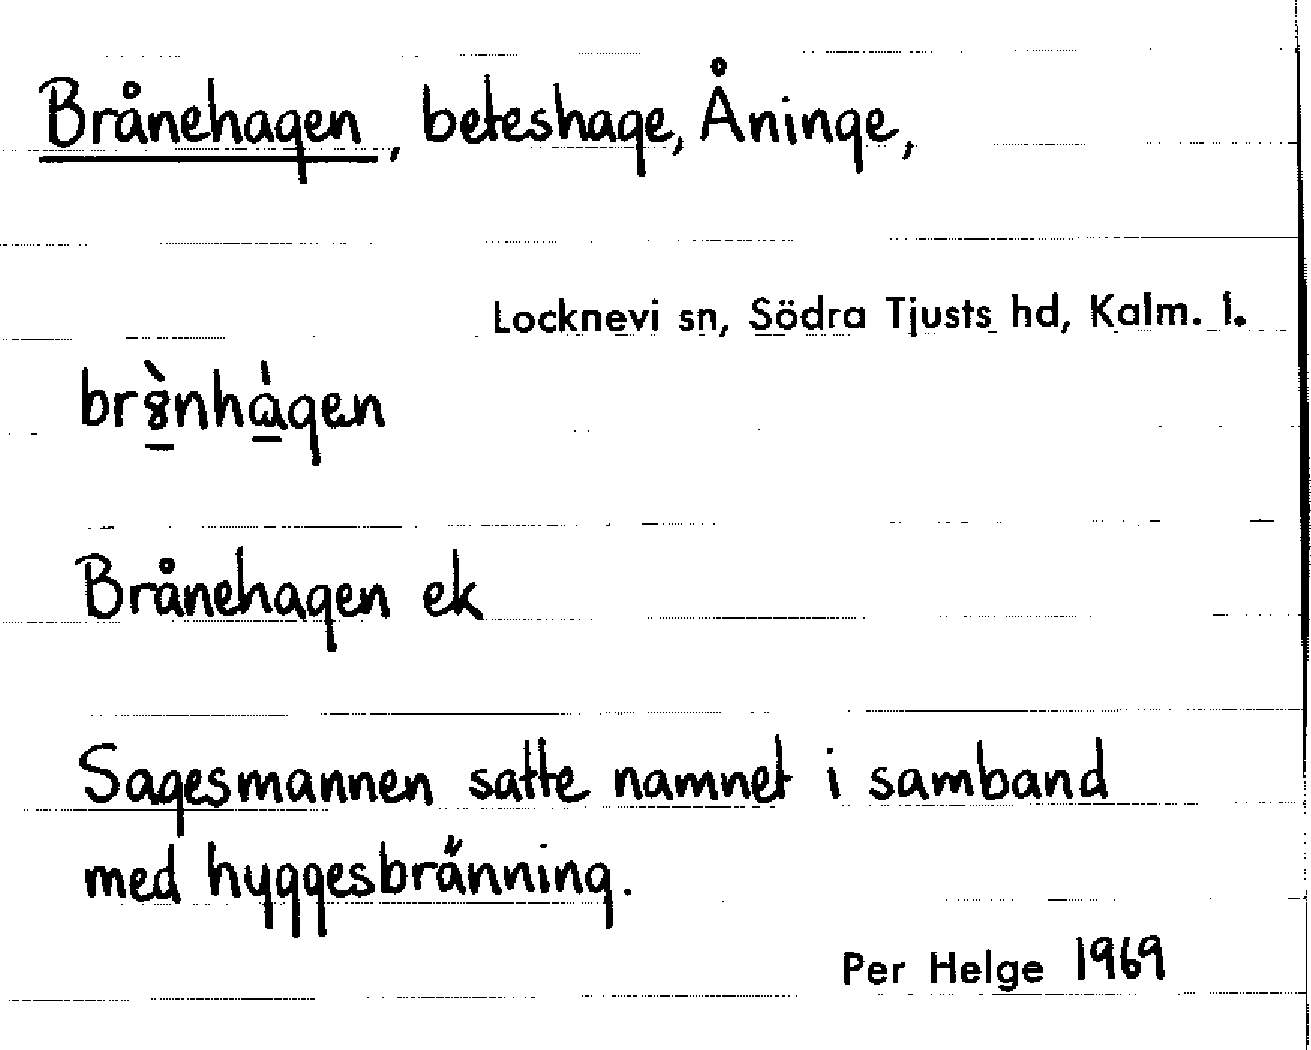 Brånehagen, beteshage, Åninge,
Locknevi sn, Södra Tjusts hd, Kalm. l.
br8̱̀nhɑ̱́gen
Brånehagen ek
Sagesmannen satte namnet i samband
med hyggesbränning.
Per Helge 1969